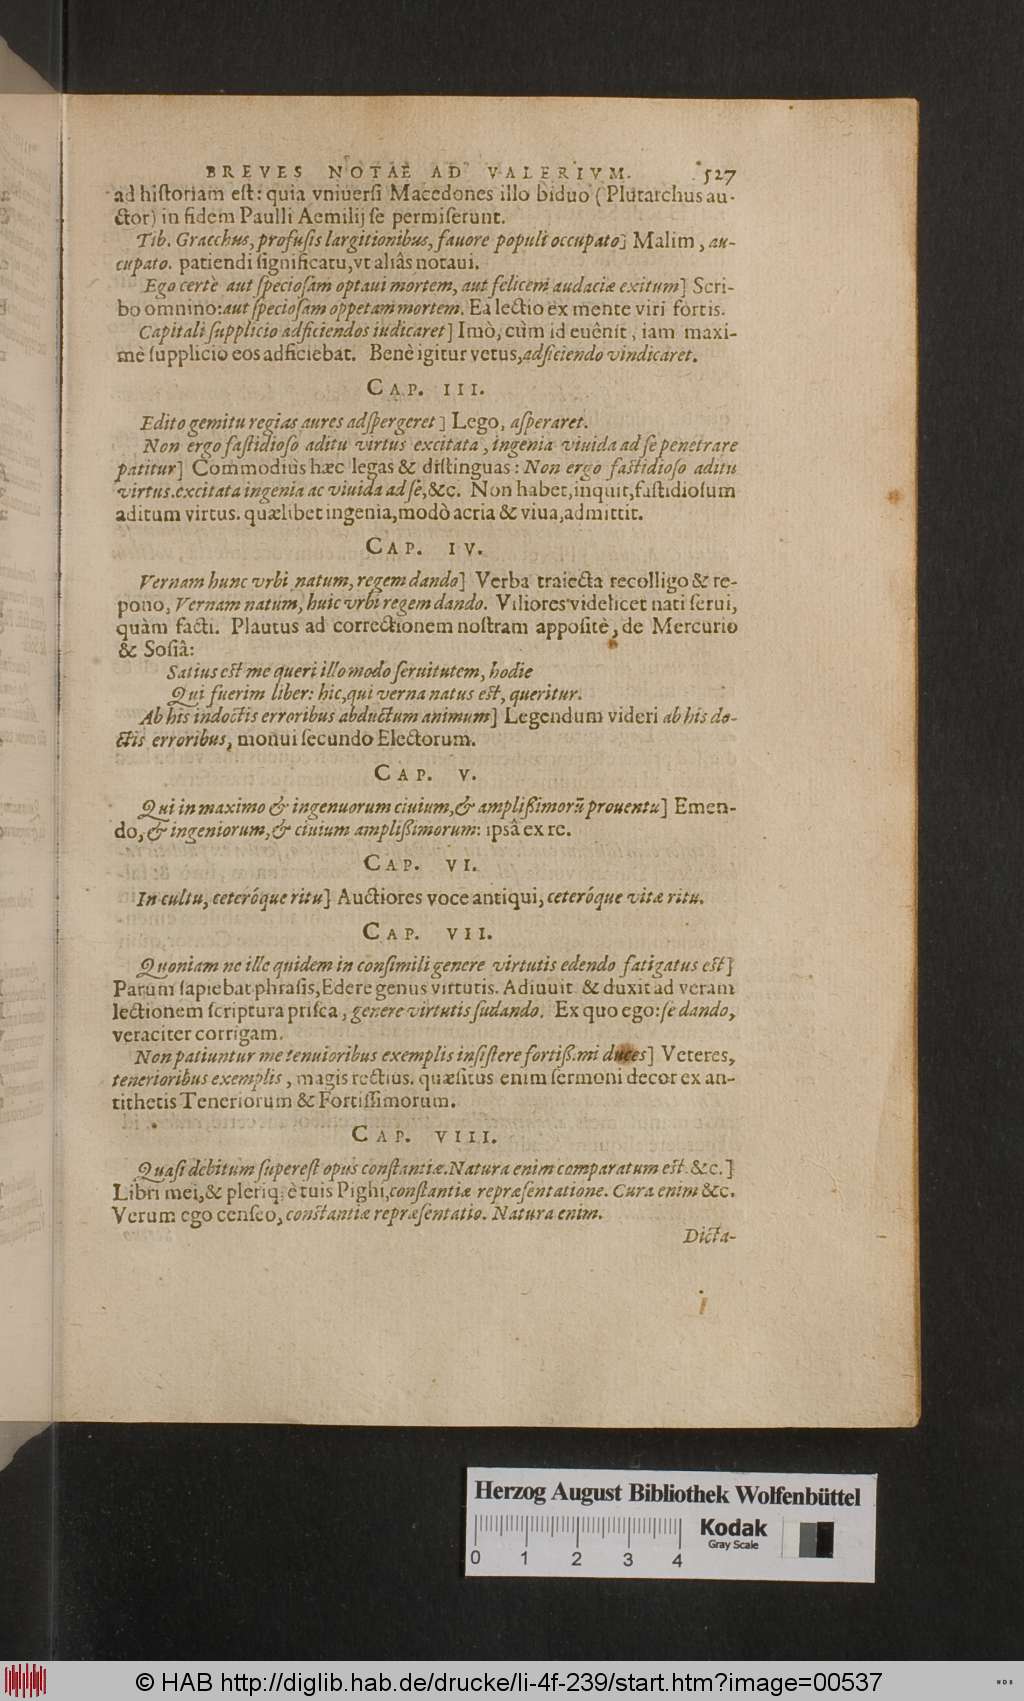 BREVES NOTAE AD VALERIVM. 527
ad historiam est: quia vniuersi Macedones illo biduo (Plutarchus au-
ctor) in fidem Paulli Aemilij se permiserunt.
Tib. Gracchus, profusis largitionibus, fauore populi occupato] Malim, au-
cupato. patiendi significatu, vt aliâs notaui.
Ego certè aut speciosam optaui mortem, aut felicem audaciæ exitum] Scri-
bo omnino: aut speciosam oppetam mortem. Ea lectio ex mente viri fortis.
Capitali supplicio adficiendos iudicaret] Imò, cùm id euênit, iam maxi-
mè supplicio eos adficiebat. Benè igitur vetus, adficiendo vindicaret.
CAP. III.
Edito gemitu regias aures adspergeret] Lego, asperaret.
Non ergo fastidioso aditu virtus excitata, ingenia viuida ad se penetrare
patitur] Commodiùs hæc legas & distinguas: Non ergo fastidioso aditu
virtus. excitata ingenia ac viuida ad se, &c. Non habet, inquit, fastidiosum
aditum virtus. quælibet ingenia, modò acria & viua, admittit.
CAP. IV.
Vernam hunc vrbi natum, regem dando] Verba traiecta recolligo & re-
pono, Vernam natum, huic vrbi regem dando. Viliores videlicet nati serui,
quàm facti. Plautus ad correctionem nostram appositè, de Mercurio
& Sosiâ:
Satius est me queri illo modo seruitutem, hodie
Qui fuerim liber: hic, qui verna natus est, queritur.
Ab his indoctis erroribus abductum animum] Legendum videri ab his do-
ctis erroribus, monui secundo Electorum.
CAP. V.
Qui in maximo & ingenuorum ciuium, & amplißimorũ prouentu] Emen-
do, & ingeniorum, & ciuium amplißimorum: ipsâ ex re.
CAP. VI.
In cultu, ceteróque ritu] Auctiores voce antiqui, ceteróque vitæ ritu.
CAP. VII.
Quoniam ne ille quidem in consimili genere virtutis edendo fatigatus est]
Parùm sapiebat phrasis, Edere genus virtutis. Adiuuit & duxit ad veram
lectionem scriptura prisca, genere virtutis sudando. Ex quo ego: se dando,
veraciter corrigam.
Non patiuntur me tenuioribus exemplis insistere fortiß.mi duces] Veteres,
tenerioribus exemplis, magis rectius. quæsitus enim sermoni decor ex an-
tithetis Teneriorum & Fortissimorum.
CAP. VIII.
Quasi debitum superest opus constantiæ. Natura enim comparatum est &c.]
Libri mei, & pleriq; è tuis Pighi, constantiæ repræsentatione. Cura enim &c.
Verum ego censeo, constantiæ repræsentatio. Natura enim.
Dicta-
Herzog August Bibliothek Wolfenbüttel
Kodak
Gray Scale
0 1 2 3 4
© HAB http://diglib.hab.de/drucke/li-4f-239/start.htm?image=00537